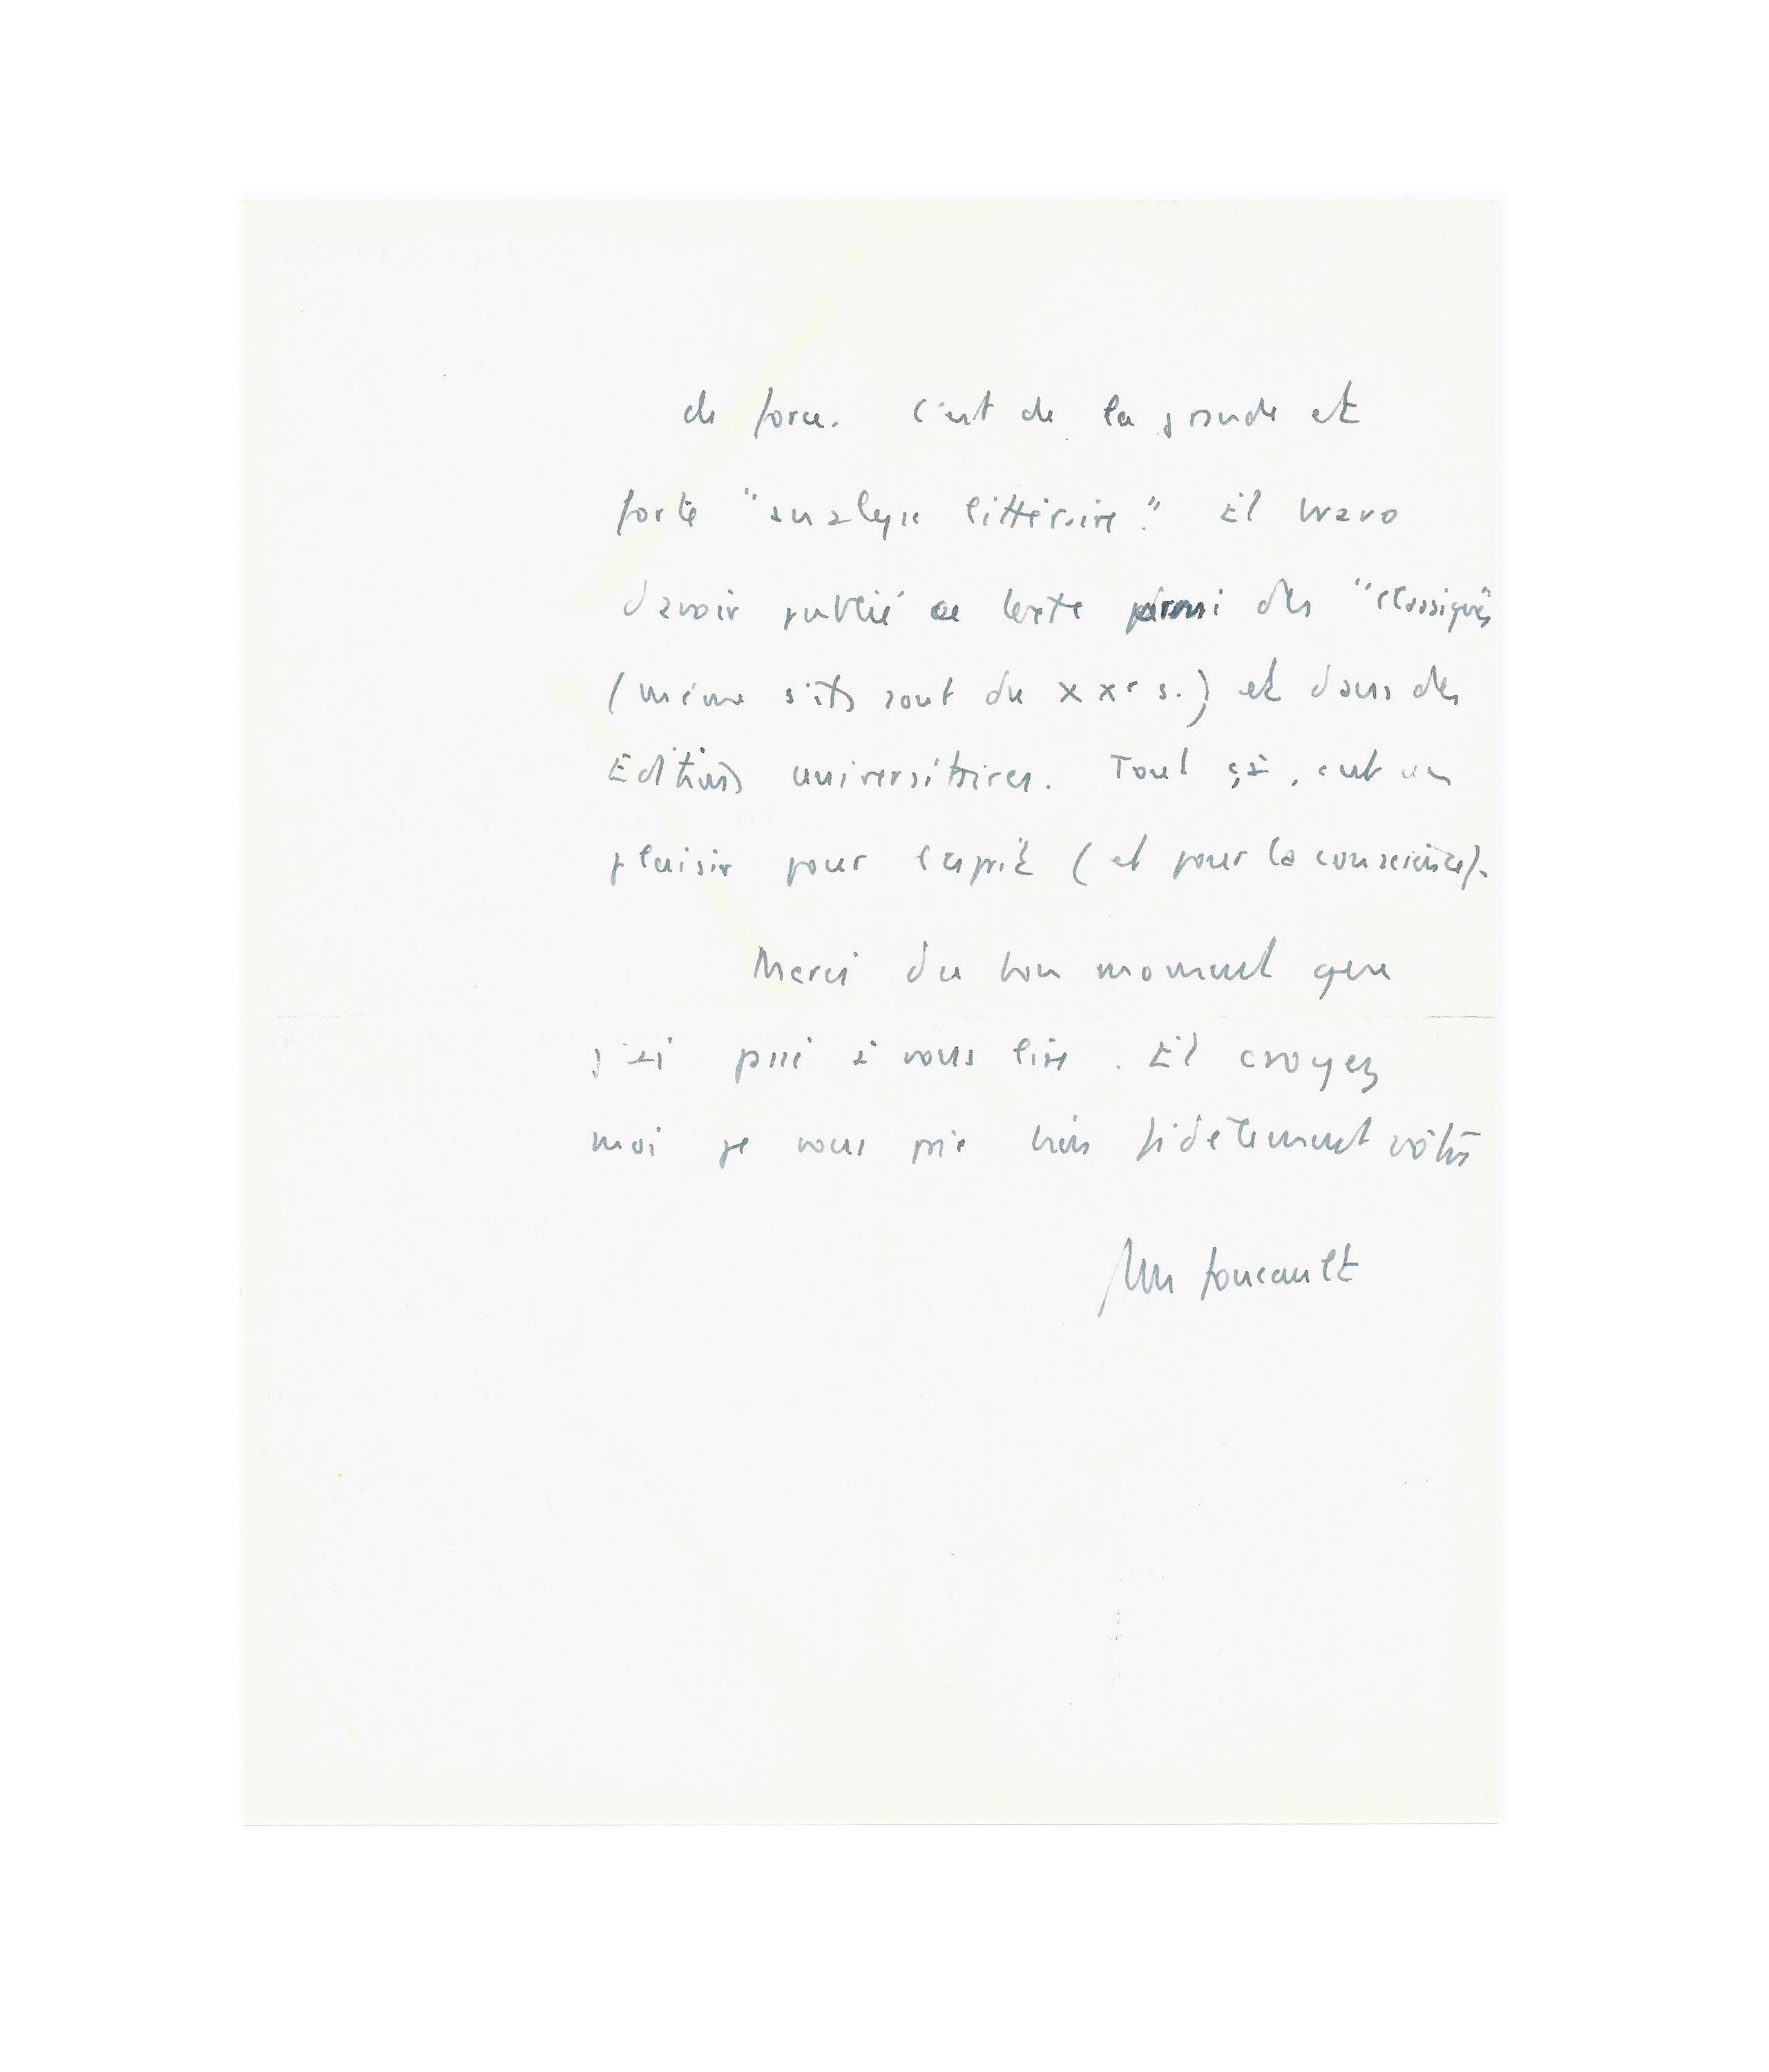 de force. C'est de la grande et
forte "analyse littéraire". Et bravo
d'avoir publié ce texte parmi des "classiques"
(même s'ils sont du XXe s.) et dans des
Editions universitaires. Tout ça, c'est un
plaisir pour l'esprit (et pour la conscience).
Merci du bon moment que
j'ai pris à vous lire. Et croyez
moi je vous prie très fidèlement vôtre
M Foucault